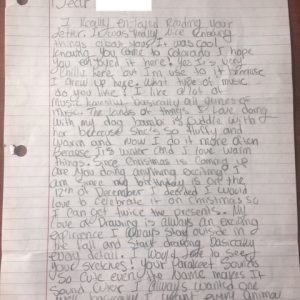 Dear
I Really enjoyed reading your
letter. I was really nice knowing
things about you. It was cool
knowing you came to Colorado I hope
you enjoyed it here! Yes It's very
chilli here but I'm use to it because
I grew up here. What type of music
do you like? I like a lot of
Music basically all genres of
Music. The kinds of things I love doing
with my dog is cuddle with
her because she's so fluffy and
warm and now I do it more often
Because It's winter and I love warm
things. Since Christmas is coming up
are you doing anything exciting? I
am since my birthday is on the
12th of December I decided I would
love to celebrate it on Christmas so
I can get twice the presents. My
love of Drawing is always an exciting
experience I always stay outside in
the and start drawing basically
every detail. I would love to see
your sketches! Your Parakeet sounds
so cute even the name makes it
sound cute. I always wanted one
animal